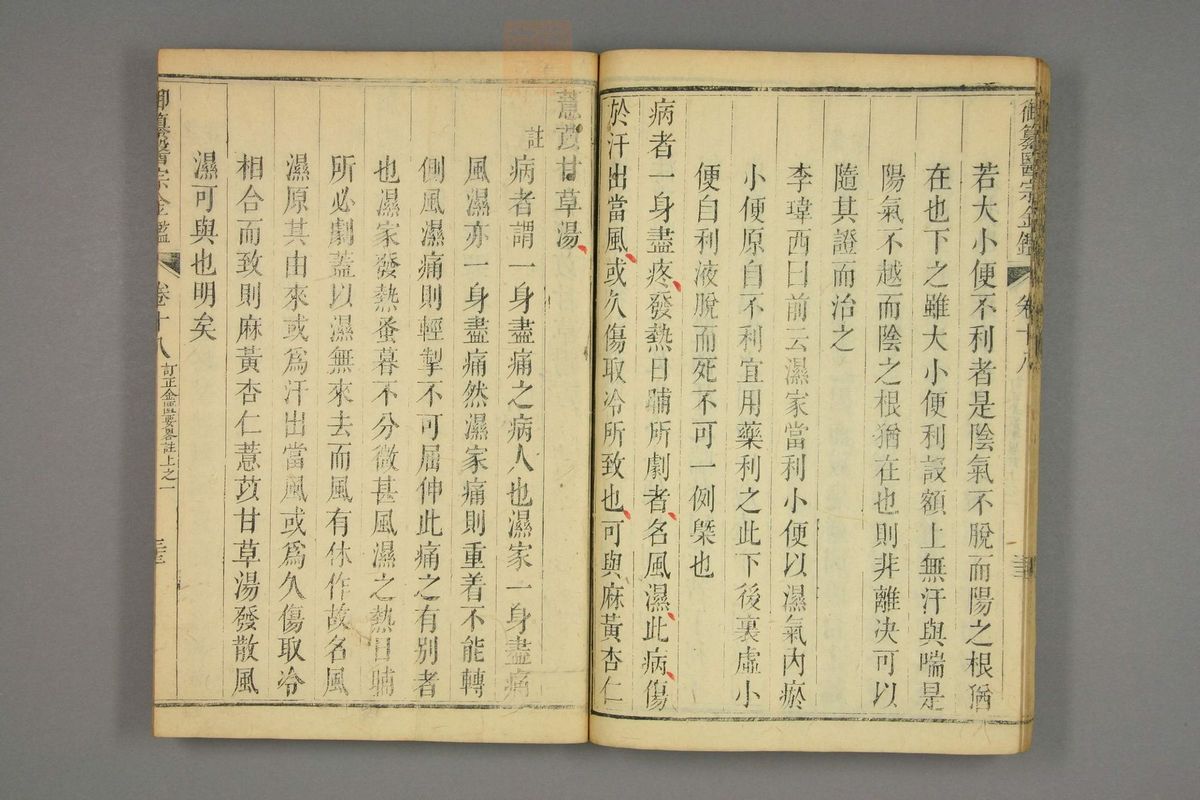 御纂醫宗金鑑 卷十八
若大小便不利者是陰氣不脫而陽之根猶
在也下之雖大小便利設額上無汗與喘是
陽氣不越而陰之根猶在也則非離決可以
隨其證而治之
李瑋西曰前云濕家當利小便以濕氣內瘀
小便原自不利宜用藥利之此下後裏虛小
便自利液脫而死不可一例槩也
病者一身盡疼發熱日晡所劇者名風濕此病傷
於汗出當風或久傷取冷所致也可與麻黃杏仁
薏苡甘草湯
註病者謂一身盡痛之病人也濕家一身盡痛
風濕亦一身盡痛然濕家痛則重着不能轉
側風濕痛則輕掣不可屈伸此痛之有別者
也濕家發熱蚤暮不分微甚風濕之熱日晡
所必劇蓋以濕無來去而風有休作故名風
濕原其由來或為汗出當風或為久傷取冷
相合而致則麻黃杏仁薏苡甘草湯發散風
濕可與也明矣
御纂醫宗金鑑 卷十八 訂正金匱要畧註上之一